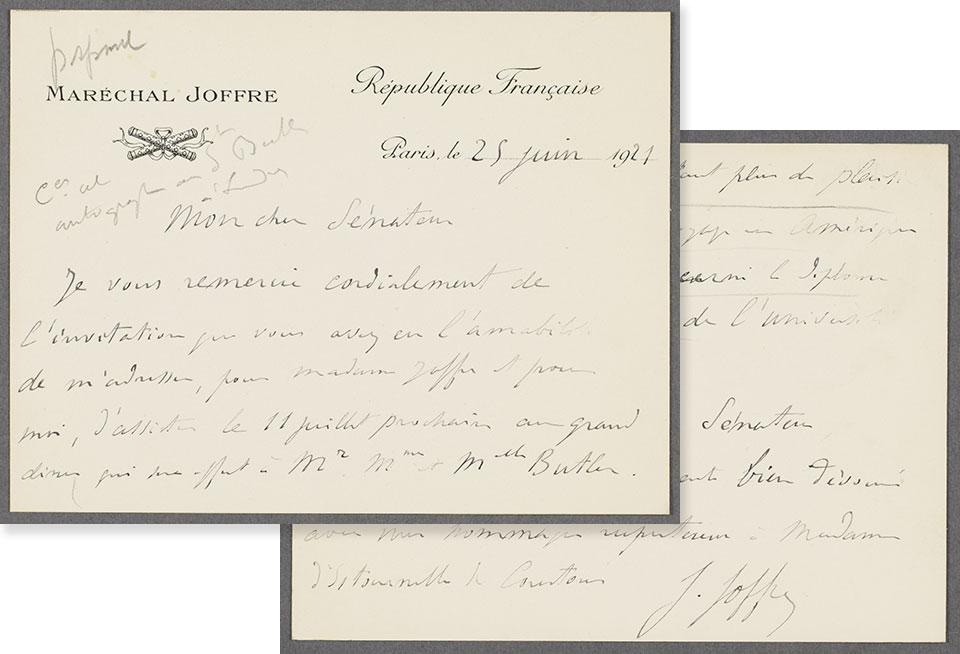 MARÉCHAL JOFFRE
République Française
Paris, le 25 juin 1921
autographe
Butler
Mon cher Sénateur
Je vous remercie cordialement de
l'invitation que vous avez eu l'amabilité
de m'adresser, pour madame Joffre et pour
moi, d'assister le 11 juillet prochain au grand
diner qui sera offert à Mr Mme et Melle Butler.
plus de plaisir
en Amérique
le Diplome
de l'université
Sénateur,
bien dévoués
avec mes hommages respectueux à Madame
d'Estournelles de Constant
J. Joffre